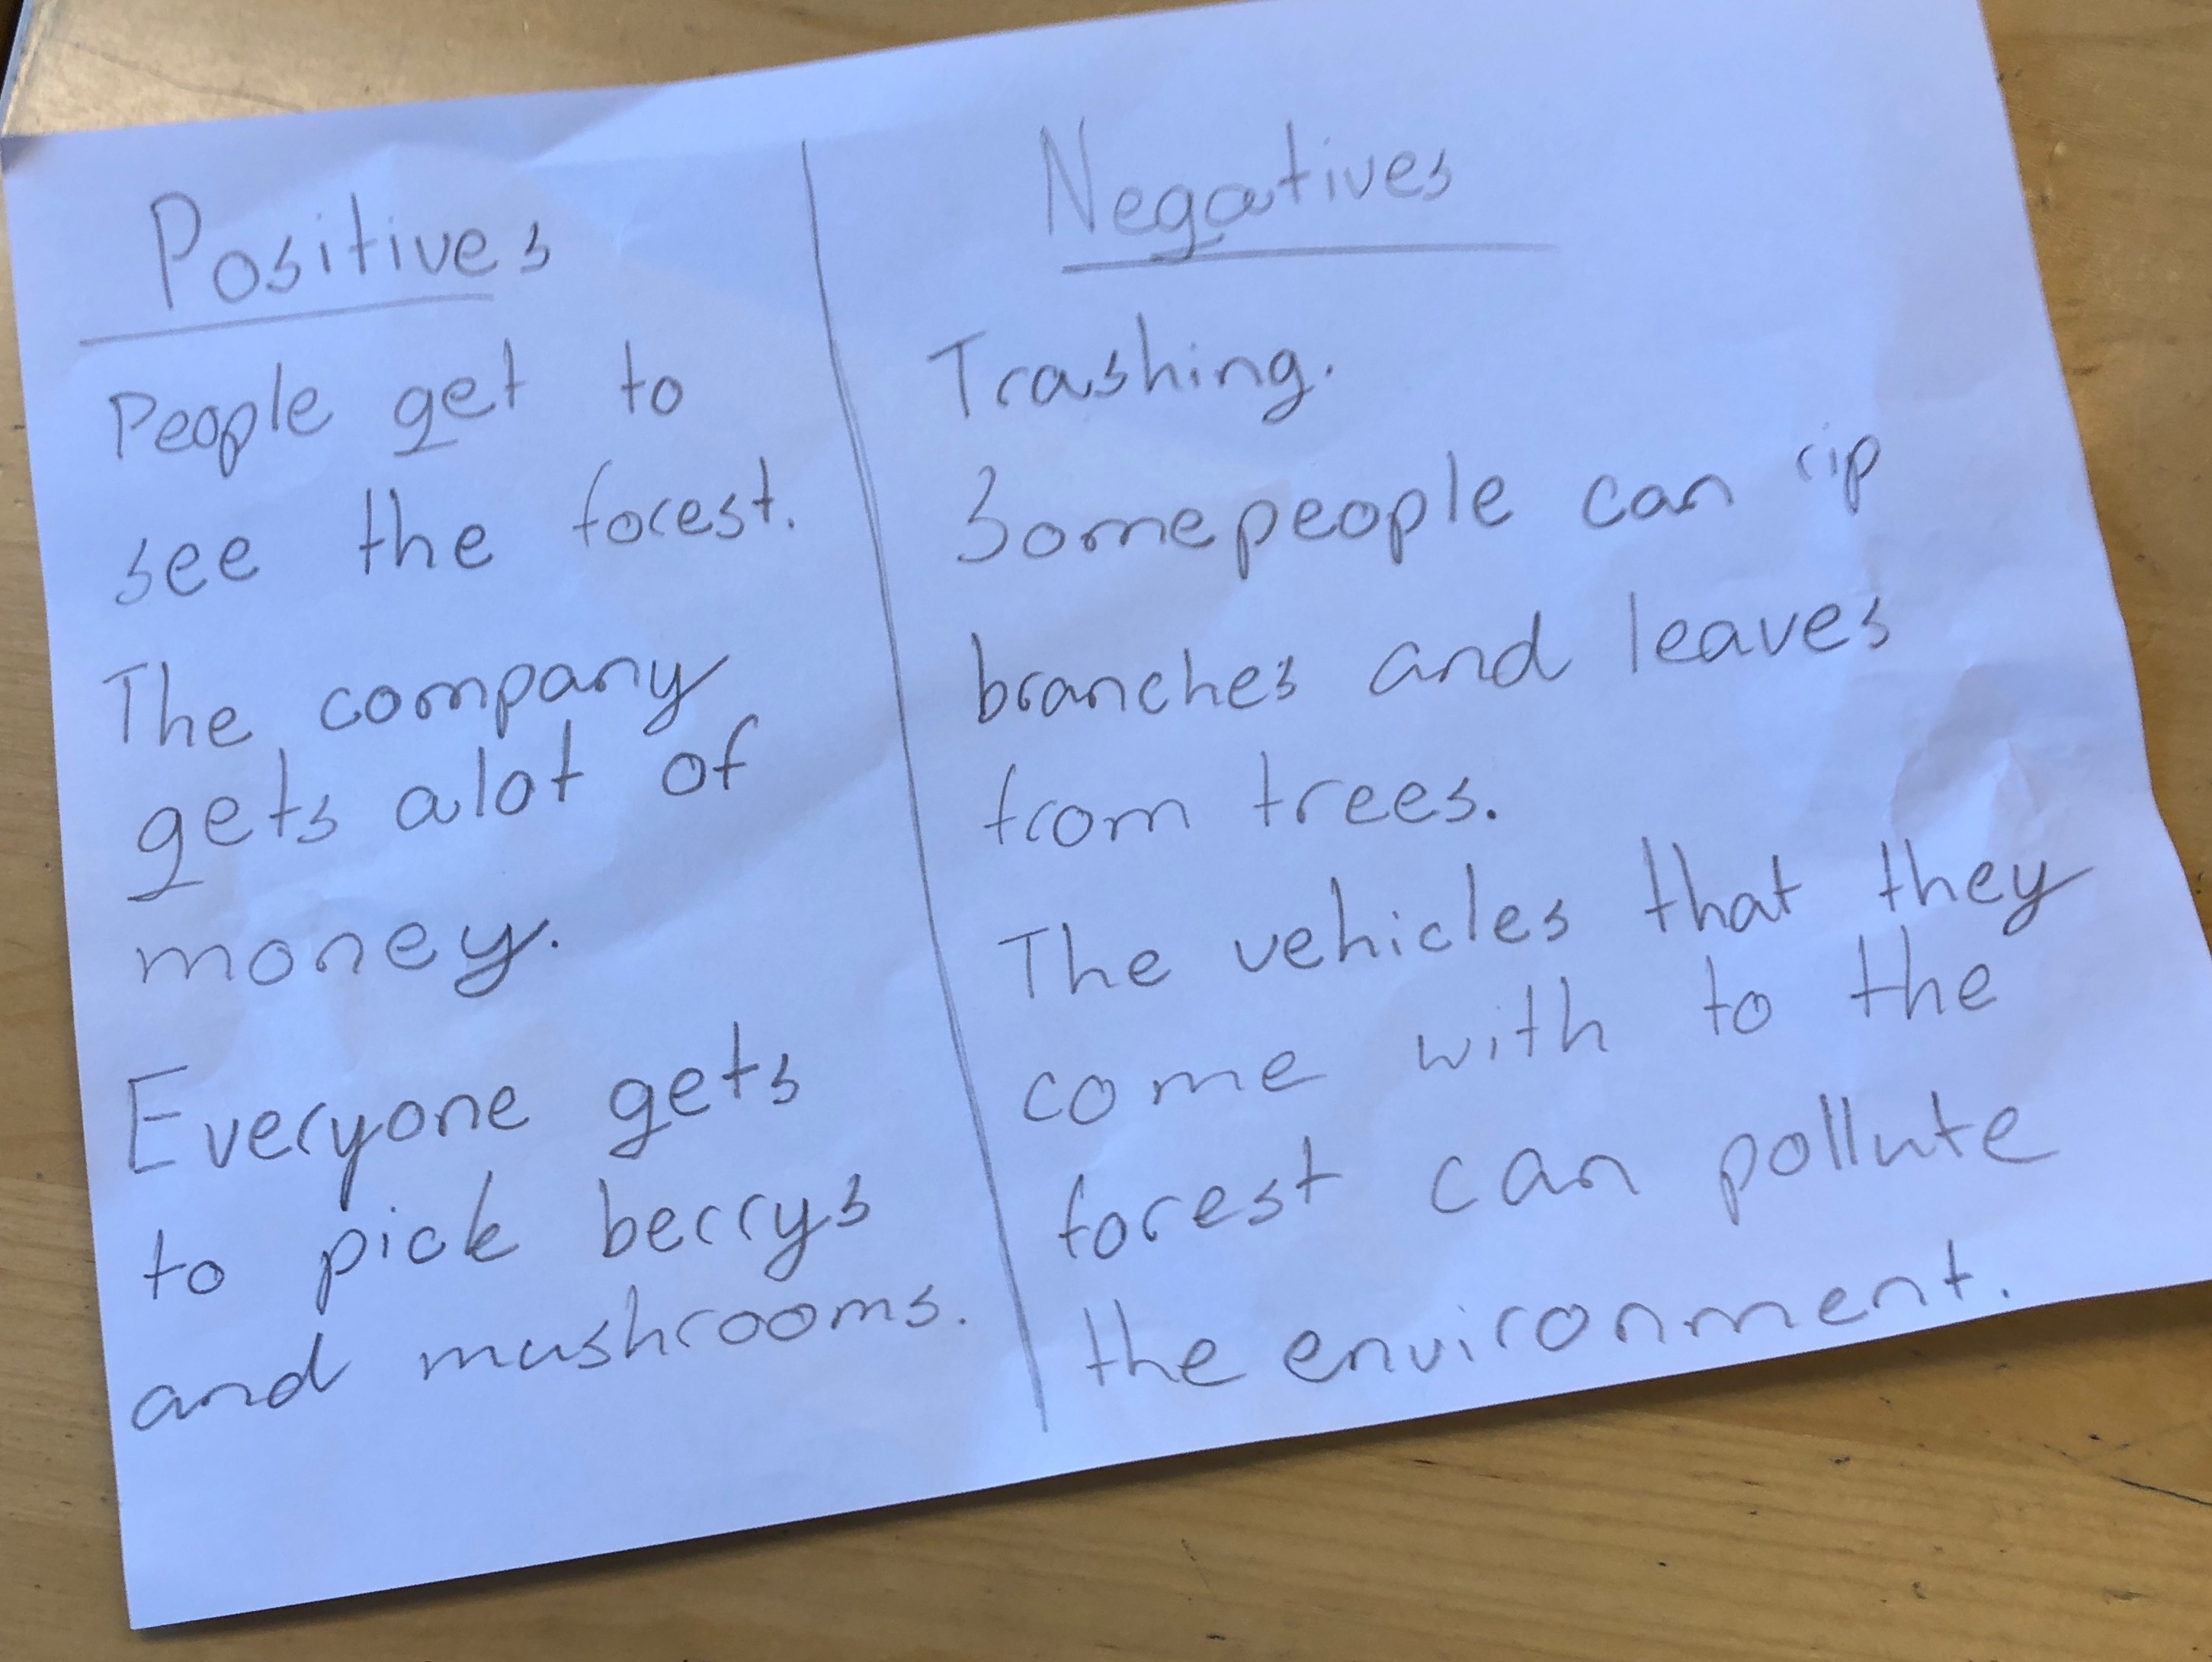 Positives
People get to
see the forest.
The company
gets alot of
money.
Everyone gets
to pick berrys
and mushrooms.
Negatives
Trashing.
Somepeople can rip
branches and leaves
from trees.
The vehicles that they
come with to the
forest can pollute
the environment.